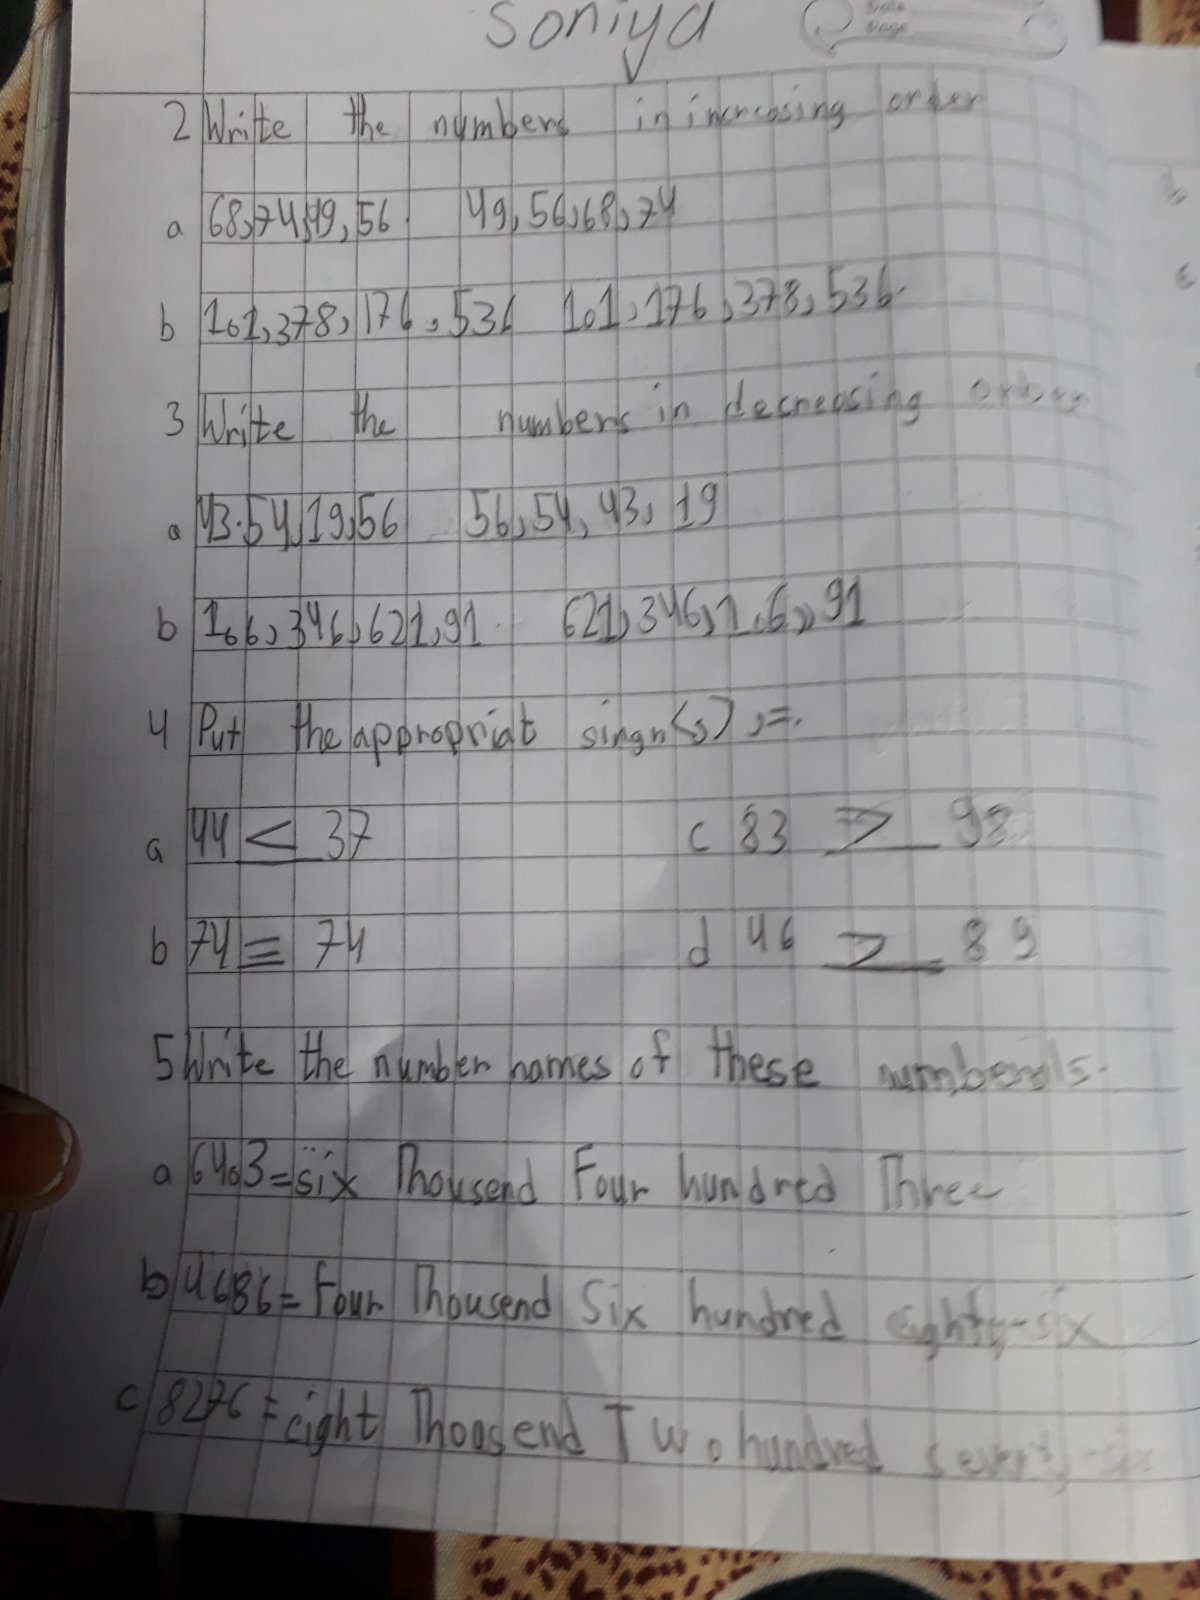 Soniya
Date
Page
2 Write the numbers in increasing order
a 68,74,49,56 49,56,68,74
b 101,378,176,536 101,176,378,536.
3 Write the numbers in decreasing order
a 43.54,19,56 56,54,43,19
b 106,346,621,91. 621,346,106,,91
4 Put the appropriat singn<,>,=.
a 44 < 37 c 83 > 98
b 74 = 74 d 46 > 89
5 Write the number names of these
a 6403=six Thousend Four hundred Three
b 4686=Four Thousend Six hundred eighty-six
c 8276=eight Thoosend Two hundred